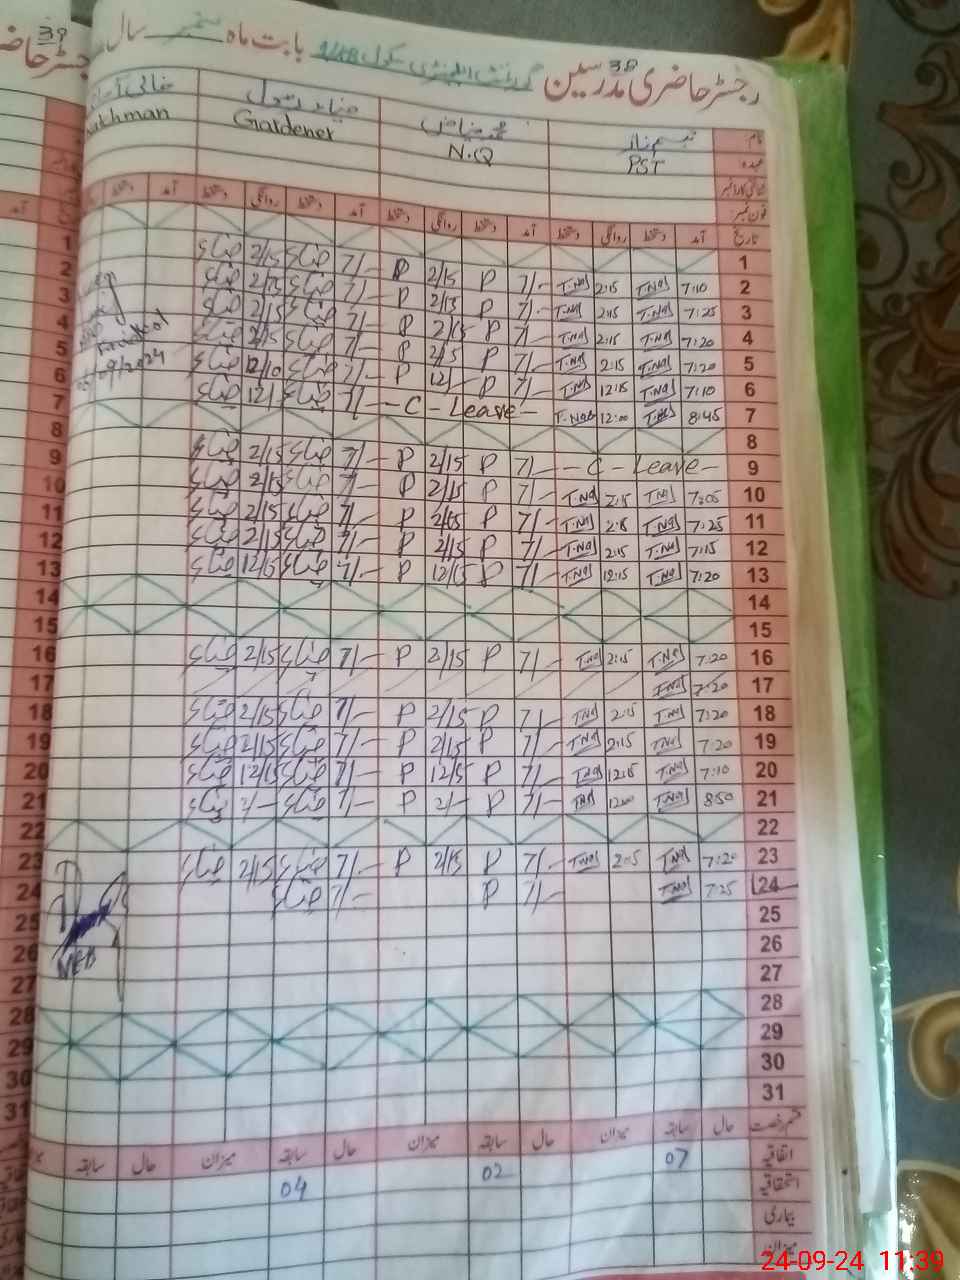 رجسٹر حاضری مدرسین 38 گورنمنٹ ایلیمنٹری سکول بابت ماہ ستمبر سال
39
نام
عہدہ PST N.Q Gardener
شناختی کارڈ نمبر
فون نمبر
تاریخ آمد دستخط روانگی دستخط آمد دستخط روانگی دستخط آمد دستخط روانگی دستخط آمد دستخط
1 7/- P 2/15 P 7/- ضیاء 2/15 ضیاء
2 7:10 T.Naz 2:15 T.Naz 7/- P 2/15 P 7/- ضیاء 2/15 ضیاء
3 7:25 T.Naz 2:15 T.Naz 7/- P 2/15 P 7/- ضیاء 2/15 ضیاء
4 7:20 T.Naz 2:15 T.Naz 7/- P 2/15 P 7/- ضیاء 2/15 ضیاء
5 7:20 T.Naz 2:15 T.Naz 7/- P 12/- P 7/- ضیاء 12/10 ضیاء
6 7:10 T.Naz 12:15 T.Naz - C - Leave - 7/- ضیاء 12/- ضیاء
05/09/2024
7 8:45 T.Naz 12:00 T.Naz
8
9 - C - Leave - 7/- P 2/15 P 7/- ضیاء 2/15 ضیاء
10 7:05 T.Naz 2:15 T.Naz 7/- P 2/15 P 7/- ضیاء 2/15 ضیاء
11 7:25 T.Naz 2:15 T.Naz 7/- P 2/15 P 7/- ضیاء 2/15 ضیاء
12 7:15 T.Naz 2:15 T.Naz 7/- P 2/15 P 7/- ضیاء 2/15 ضیاء
13 7:20 T.Naz 12:15 T.Naz 7/- P 12/15 P 7/- ضیاء 12/15 ضیاء
14
15
16 7:20 T.Naz 2:15 T.Naz 7/- P 2/15 P 7/- ضیاء 2/15 ضیاء
17 7:20 T.Naz
18 7:20 T.Naz 2:15 T.Naz 7/- P 2/15 P 7/- ضیاء 2/15 ضیاء
19 7:20 T.Naz 2:15 T.Naz 7/- P 2/15 P 7/- ضیاء 2/15 ضیاء
20 7:10 T.Naz 12:15 T.Naz 7/- P 12/15 P 7/- ضیاء 12/15 ضیاء
21 8:50 T.Naz 12:00 T.Naz 7/- P 2/- P 7/- ضیاء 2/- ضیاء
22
23 7:20 T.Naz 2:15 T.Naz 7/- P 2/15 P 7/- ضیاء 2/15 ضیاء
24 7:25 T.Naz 7/- P 7/- ضیاء
25
26
27
28
29
30
31
قسم رخصت حال سابقہ میزان حال سابقہ میزان حال سابقہ میزان حال سابقہ
اتفاقیہ 07 02 04
استحقاقیہ
بیماری
میزان
24-09-24 11:39